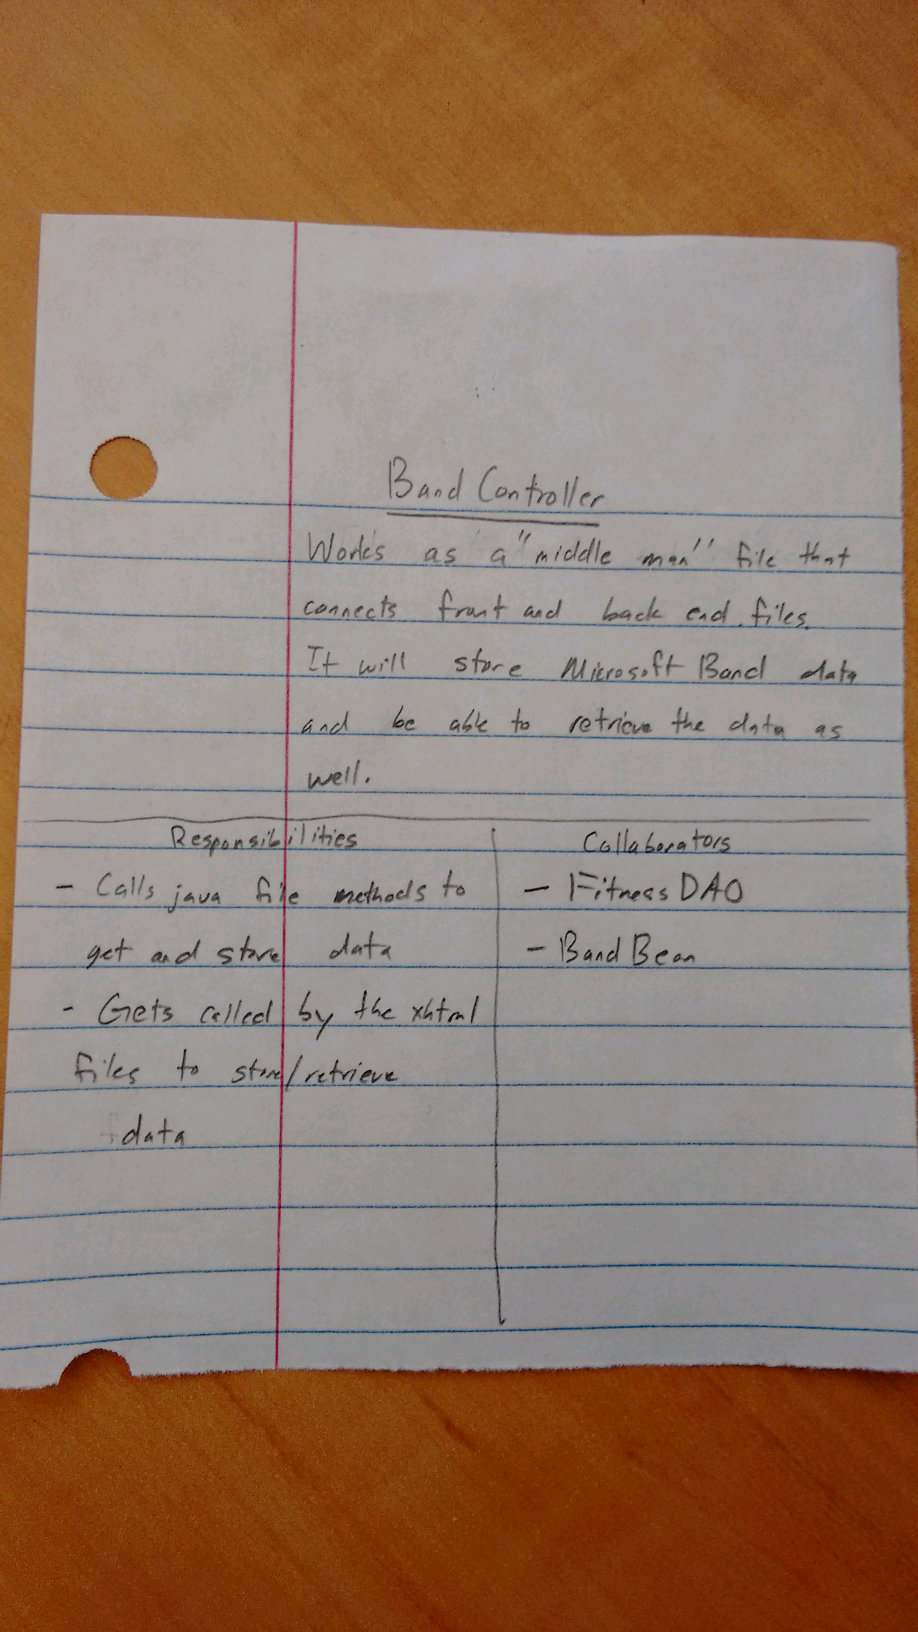 Band Controller
Works as a "middle man" file that
connects front and back end files.
It will store Microsoft Band data
and be able to retrieve the data as
well.
Responsibilities
- Calls java file methods to
get and store data
- Gets called by the xhtml
files to store/retrieve
data
Collaborators
- Fitness DAO
- Band Bean